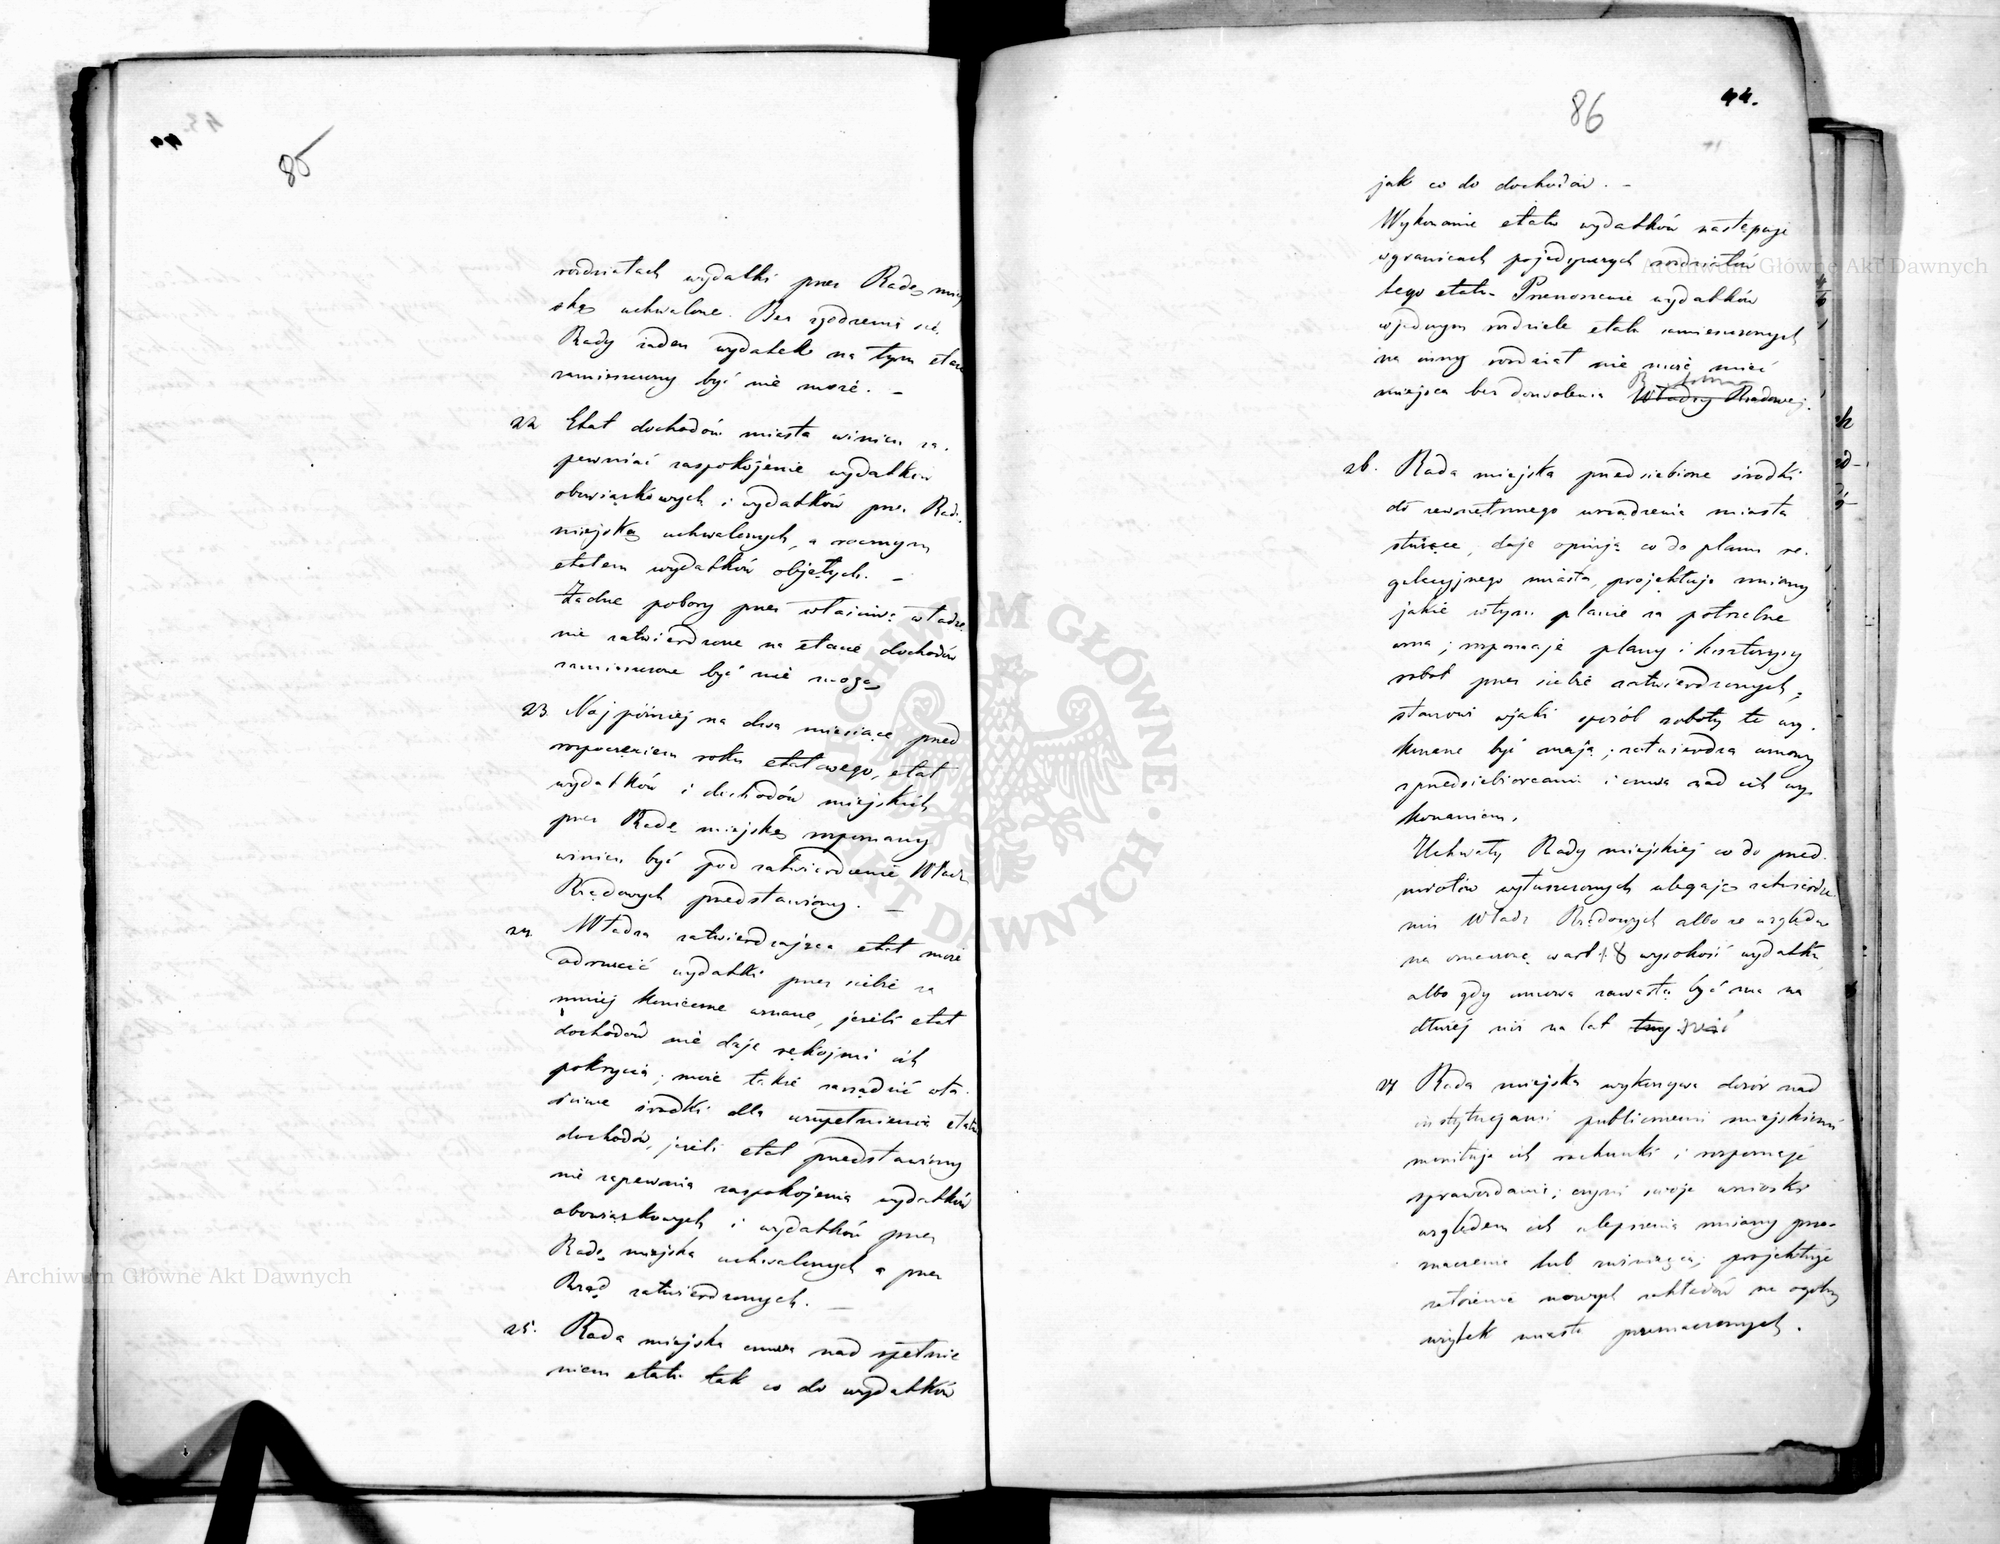 85
rozdziałach wydatki przez Radę miej
ską uchwalone. Bez zgodzenia się
Rady żaden wydatek na tym etacie
zamieszczony być nie może. —
22 Etat dochodów miasta winien za-
pewniać zaspokojenie wydatków
obowiązkowych i wydatków przez Radę
miejską uchwalonych, a rocznym
etatem wydatków objętych. —
Żadne pobory przez właściwą władzę
nie zatwierdzone na etacie dochodów
zamieszczone być nie mogą
23. Najpóźniej na dwa miesiące przed
rozpoczęciem roku etatowego, etat
wydatków i dochodów miejskich
przez Radę miejską rozpoznany
winien być pod zatwierdzenie Władz
Rządowych przedstawiony. —
24 Władza zatwierdzająca etat może
odrzucić wydatki przez siebie za
mniej konieczne uznane, jeżeli etat
dochodów nie daje rękojmi ich
pokrycia; może także zarządzić sto-
sowne środki dla uzupełnienia etatu
dochodów, jeżeli etat przedstawiony
nie zapewnia zaspokojenia wydatków
obowiązkowych i wydatków przez
Radę miejską uchwalonych a przez
Rząd zatwierdzonych. —
25. Rada miejska czuwa nad spełnie
niem etatu tak co do wydatków
86
44.
jak co do dochodów. —
Wykonanie etatu wydatków następuje
w granicach pojedynczych rozdziałów
tego etatu. Przenoszenie wydatków
w jednym rozdziele etatu zamieszczonych
na inny rozdział nie może mieć
miejsca bez dozwolenia Władzy Rządowej.
26. Rada miejska przedsiębierze środki
do zewnętrznego urządzenia miasta
służące, daje opinją co do planu re-
gulacyjnego miasta, projektuje zmiany
jakie w tym planie za potrzebne
uzna; rozpoznaje plany i kosztorysy
robot przez siebie zatwierdzonych,
stanowi w jaki sposób roboty te wy-
konane być mają; zatwierdza umowy
z przedsiębiorcami i czuwa nad ich wy
konaniem.
Uchwały Rady miejskiej co do przed-
miotów wyłuszczonych ulegają zatwierdze
niu Władz Rządowych albo ze względu
na oznaczoną w art. 18 wysokość wydatku,
albo gdy umowa zawartą być ma na
dłużej niż na lat trzy sześć
27 Rada miejska wykonywa dozór nad
instytucjami publicznemi miejskiemi
monituje ich rachunki i rozpoznaje
sprawozdania; czyni swoje wnioski
względem ich ulepszenia zmiany prze-
znaczenia lub zwinięcia; projektuje
założenie nowych zakładów na ogólny
użytek miasta przeznaczonych.
Archiwum Główne Akt Dawnych
Archiwum Główne Akt Dawnych
ARCHIWUM GŁÓWNE AKT DAWNYCH